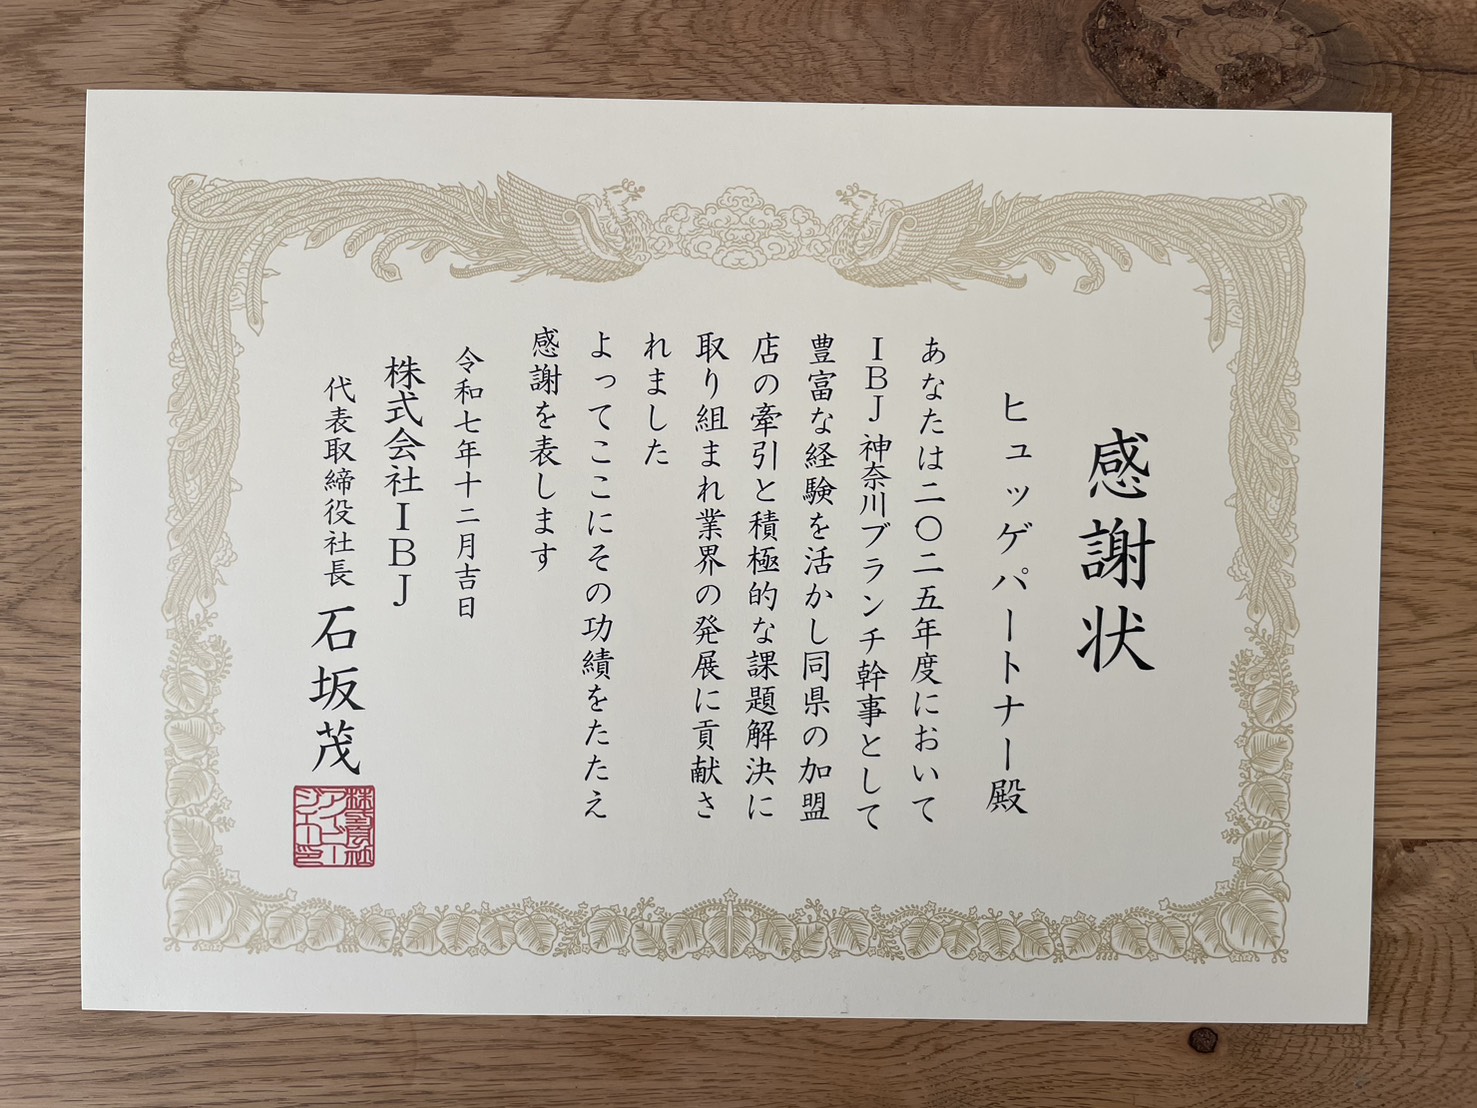 感謝状
ヒュッゲパートナー殿
あなたは二〇二五年度において
ＩＢＪ神奈川ブランチ幹事として
豊富な経験を活かし同県の加盟
店の牽引と積極的な課題解決に
取り組まれ業界の発展に貢献さ
れました
よってここにその功績をたたえ
感謝を表します
令和七年十二月吉日
株式会社ＩＢＪ
代表取締役社長 石坂茂
株式会社
アイビー
ジェイ印